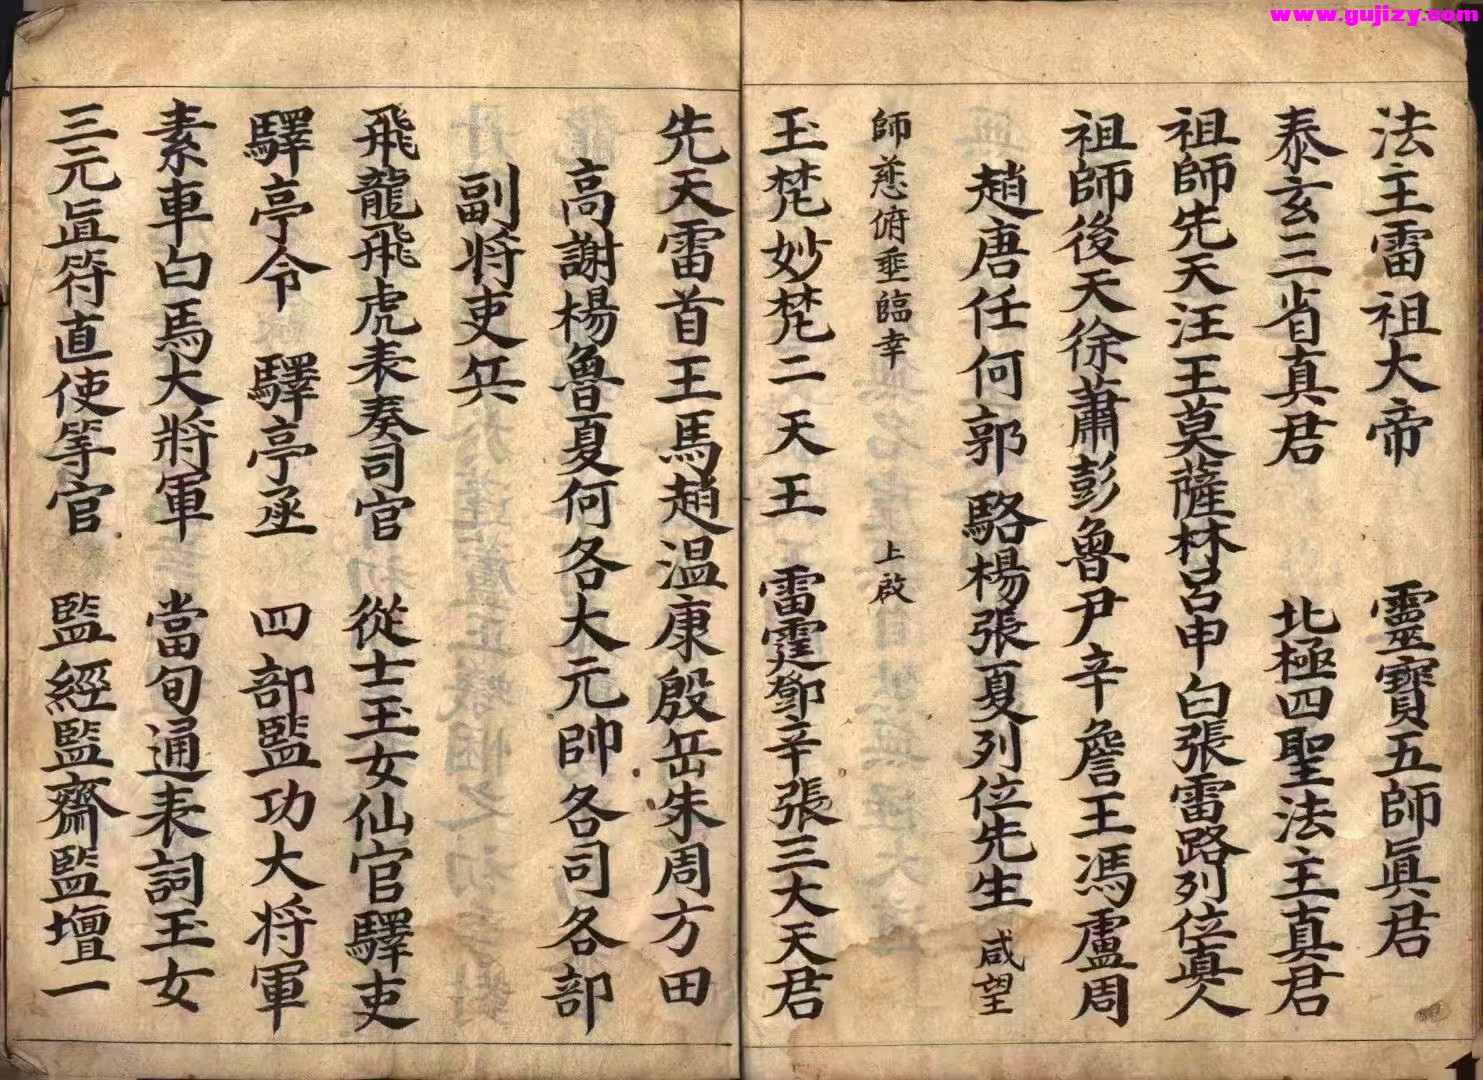 www.gujizy.com
法主雷祖大帝 靈寶五師眞君
泰玄三省真君 北極四聖法主真君
祖師先天汪王莫薩林呂申白張雷路列位眞人
祖師後天徐蕭彭魯尹辛詹王馮盧周
趙唐任何郭駱楊張夏列位先生 咸望
師慈俯垂臨幸 上啟
玉梵妙梵二天王 雷霆鄧辛張三大天君
先天雷首王馬趙溫康殷岳朱周方田
高謝楊魯夏何各大元帥各司各部
副將吏兵
飛龍飛虎表奏司官 從士玉女仙官驛吏
驛亭令 驛亭丞 四部監功大將軍
素車白馬大將軍 當旬通表詞玉女
三元眞符直使等官 監經監齋監壇一